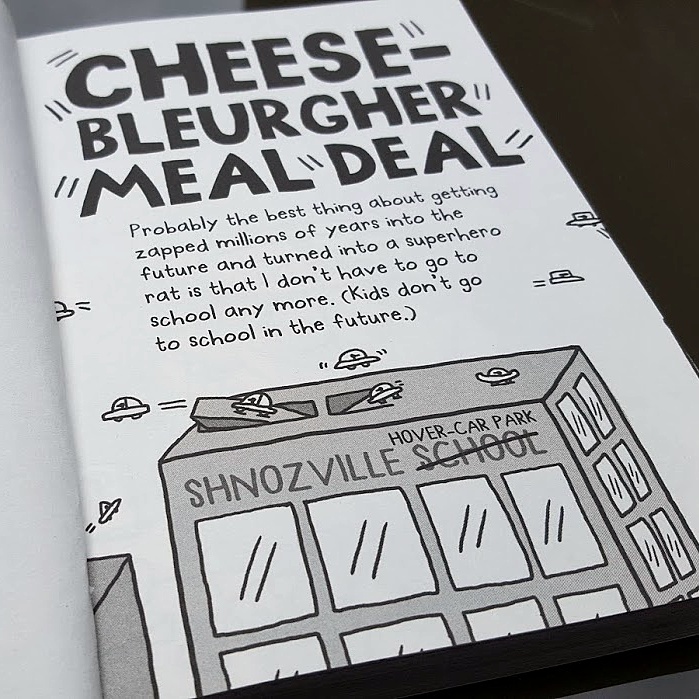 CHEESE-
BLEURGHER
MEAL DEAL
Probably the best thing about getting
zapped millions of years into the
future and turned into a superhero
rat is that I don't have to go to
school any more. (Kids don't go
to school in the future.)
HOVER-CAR PARK
SHNOZVILLE SCHOOL